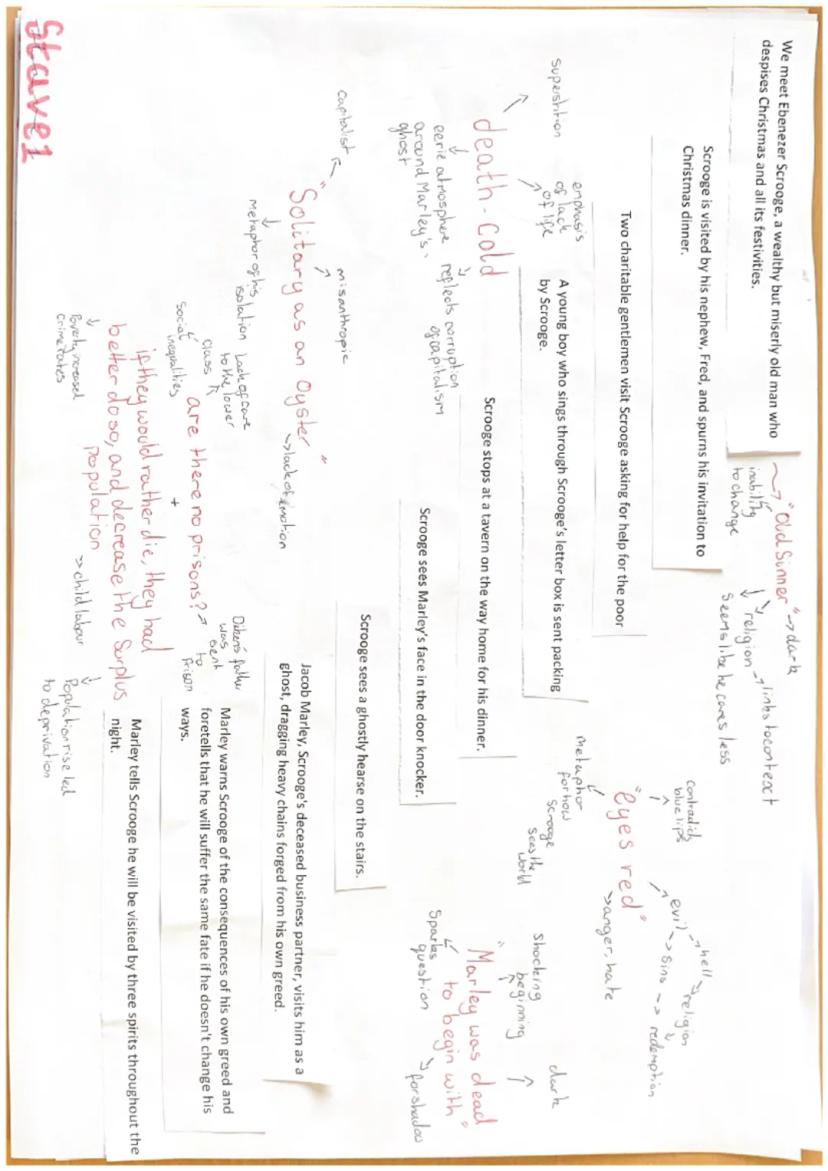 We meet Ebenezer Scrooge, a wealthy but miserly old man who
despises Christmas and all its festivities.
"Old Sinner"
inability
to change
dark
religion
links to context
seems like he cares less
Scrooge is visited by his nephew, Fred, and spurns his invitation to
Christmas dinner.
Two charitable gentlemen visit Scrooge asking for help for the poor
A young boy who sings through Scrooge's letter box is sent packing
by Scrooge.
Scrooge stops at a tavern on the way home for his dinner.
Scrooge sees Marley's face in the door knocker.
Scrooge sees a ghostly hearse on the stairs.
Jacob Marley, Scrooge's deceased business partner, visits him as a
ghost, dragging heavy chains forged from his own greed.
Marley warns Scrooge of the consequences of his own greed and
foretells that he will suffer the same fate if he doesn't change his
ways.
Marley tells Scrooge he will be visited by three spirits throughout the
night.
superstition
emphasis
of lack
of life
death-cold
eerie atmosphere
around Marley's
ghost
reflects corruption
of capitalism
capitalist
misanthropic
"Solitary as an Oyster"
metaphor of his
isolation
lack of emotion
Lack of care
to the lower
class
Social
inequalities
are there no prisons?
+
if they would rather die, they had
better do so, and decrease the Surplus
Population
Poverty increased
crime rates
child labour
Population rise led
to deprivation
father
was
sent
to
prison
contradicts
blue lips
"eyes red"
metaphor
for how
Scrooge
sees the
world
anger, hate
evil
hell
religion
sins
redemption
shocking
beginning
dark
"Marley was dead
to begin with"
Sparks
question
forshadow
Stave 1